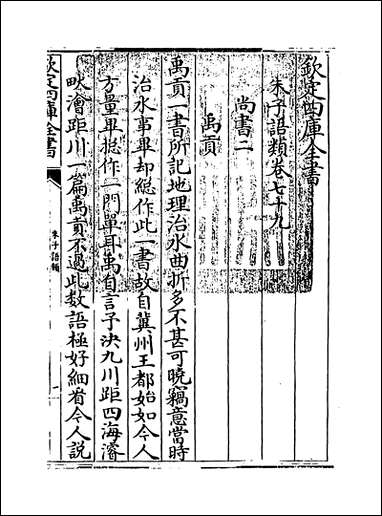 欽定四庫全書
朱子語類卷七十九
尚書二
禹貢
禹貢一書所記地理治水曲折多不甚可曉竊意當時
治水事畢却緫作此一書故自冀州王都始如今人
方量畢緫作一門單耳禹自言予決九川距四海濬
畎澮距川一篇禹貢不過此數語極好細看今人說
欽定四庫全書
朱子語類
一